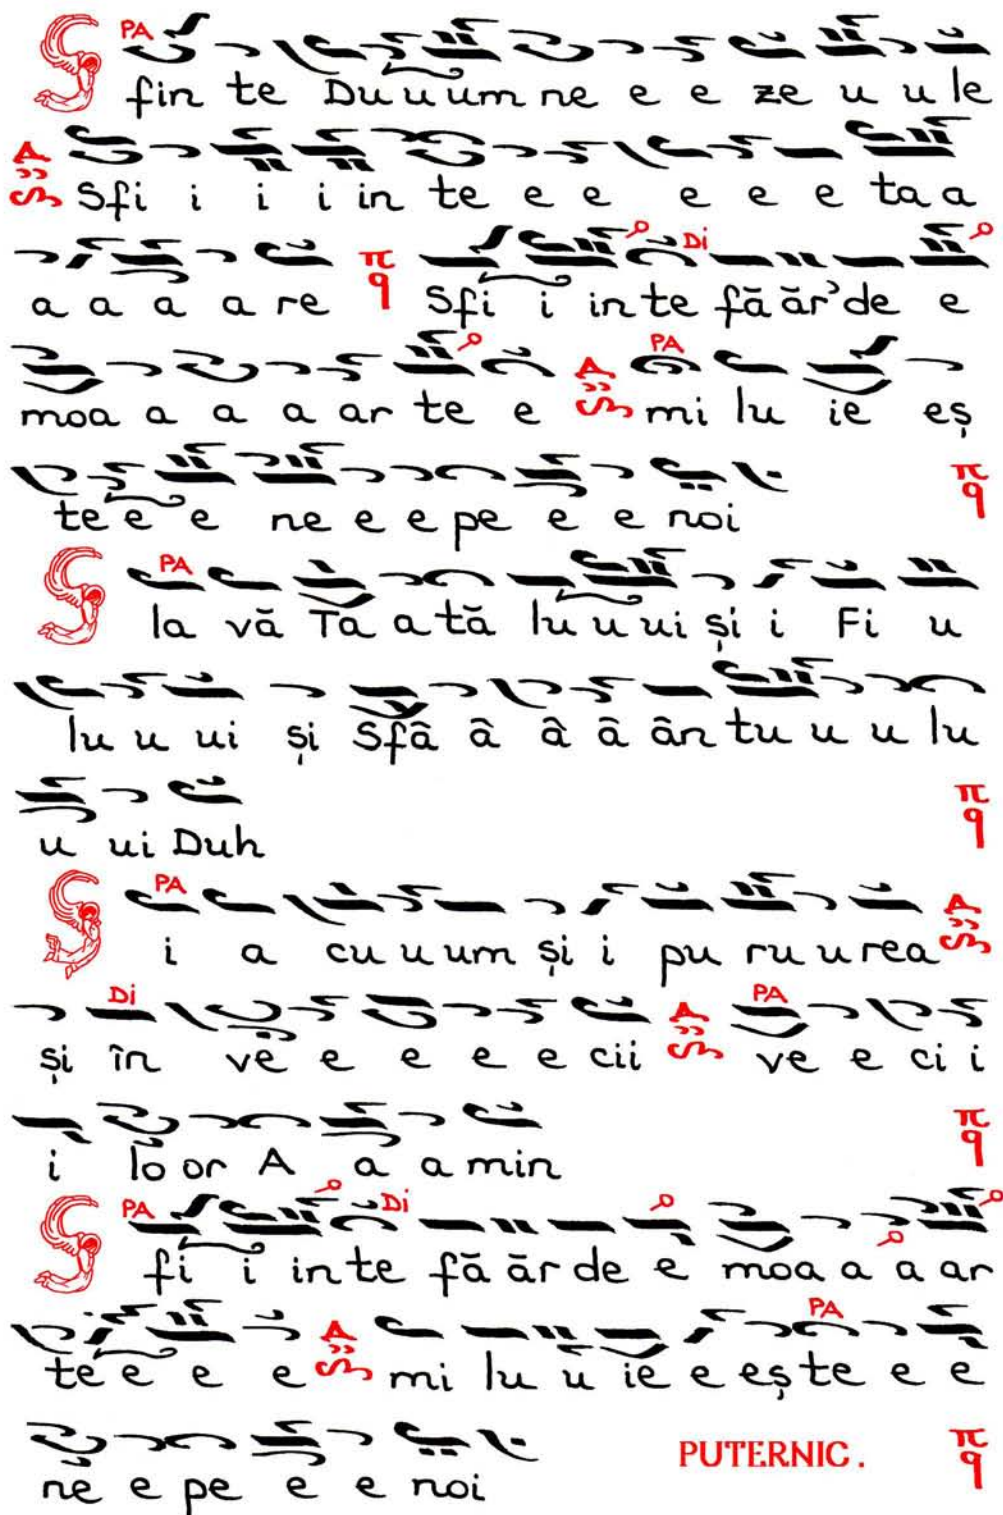 PA
Sfin te Du u um ne e e ze u u le
Sfi i i i in te e e e e e ta a
a a a a re Sfi i in te fă ăr' de e
Di
moa a a a ar te e mi lu ie eș
PA
te e e ne e e pe e e noi
PA
Sla vă Ta a tă lu u ui și i Fi u
lu u ui și Sfâ â â â ân tu u u lu
u ui Duh
PA
Și a cu u um și i pu ru u rea
Di PA
și în ve e e e e cii ve e ci i
i lo or A a a min
PA Di
Sfi i in te fă ăr de e moa a a ar
PA
te e e e mi lu u ie e eș te e e
ne e pe e e noi PUTERNIC.